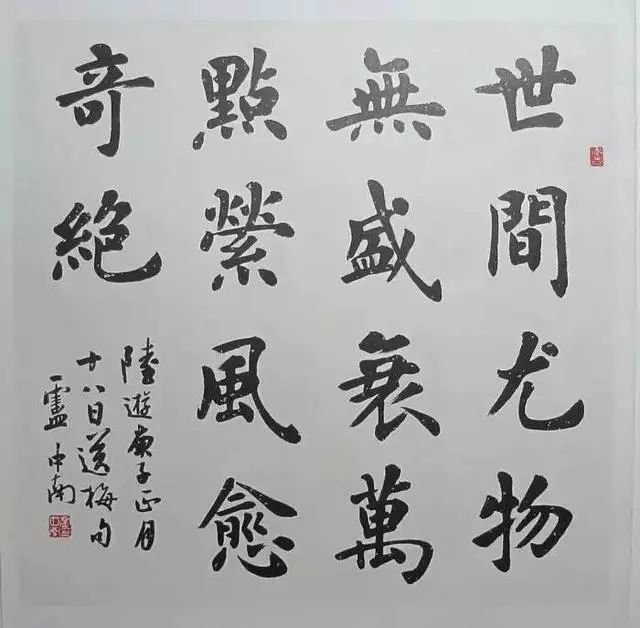 世間尤物
無盛衰萬
點縈風愈
奇絶
陸遊庚子正月
十八日送梅句
盧中南